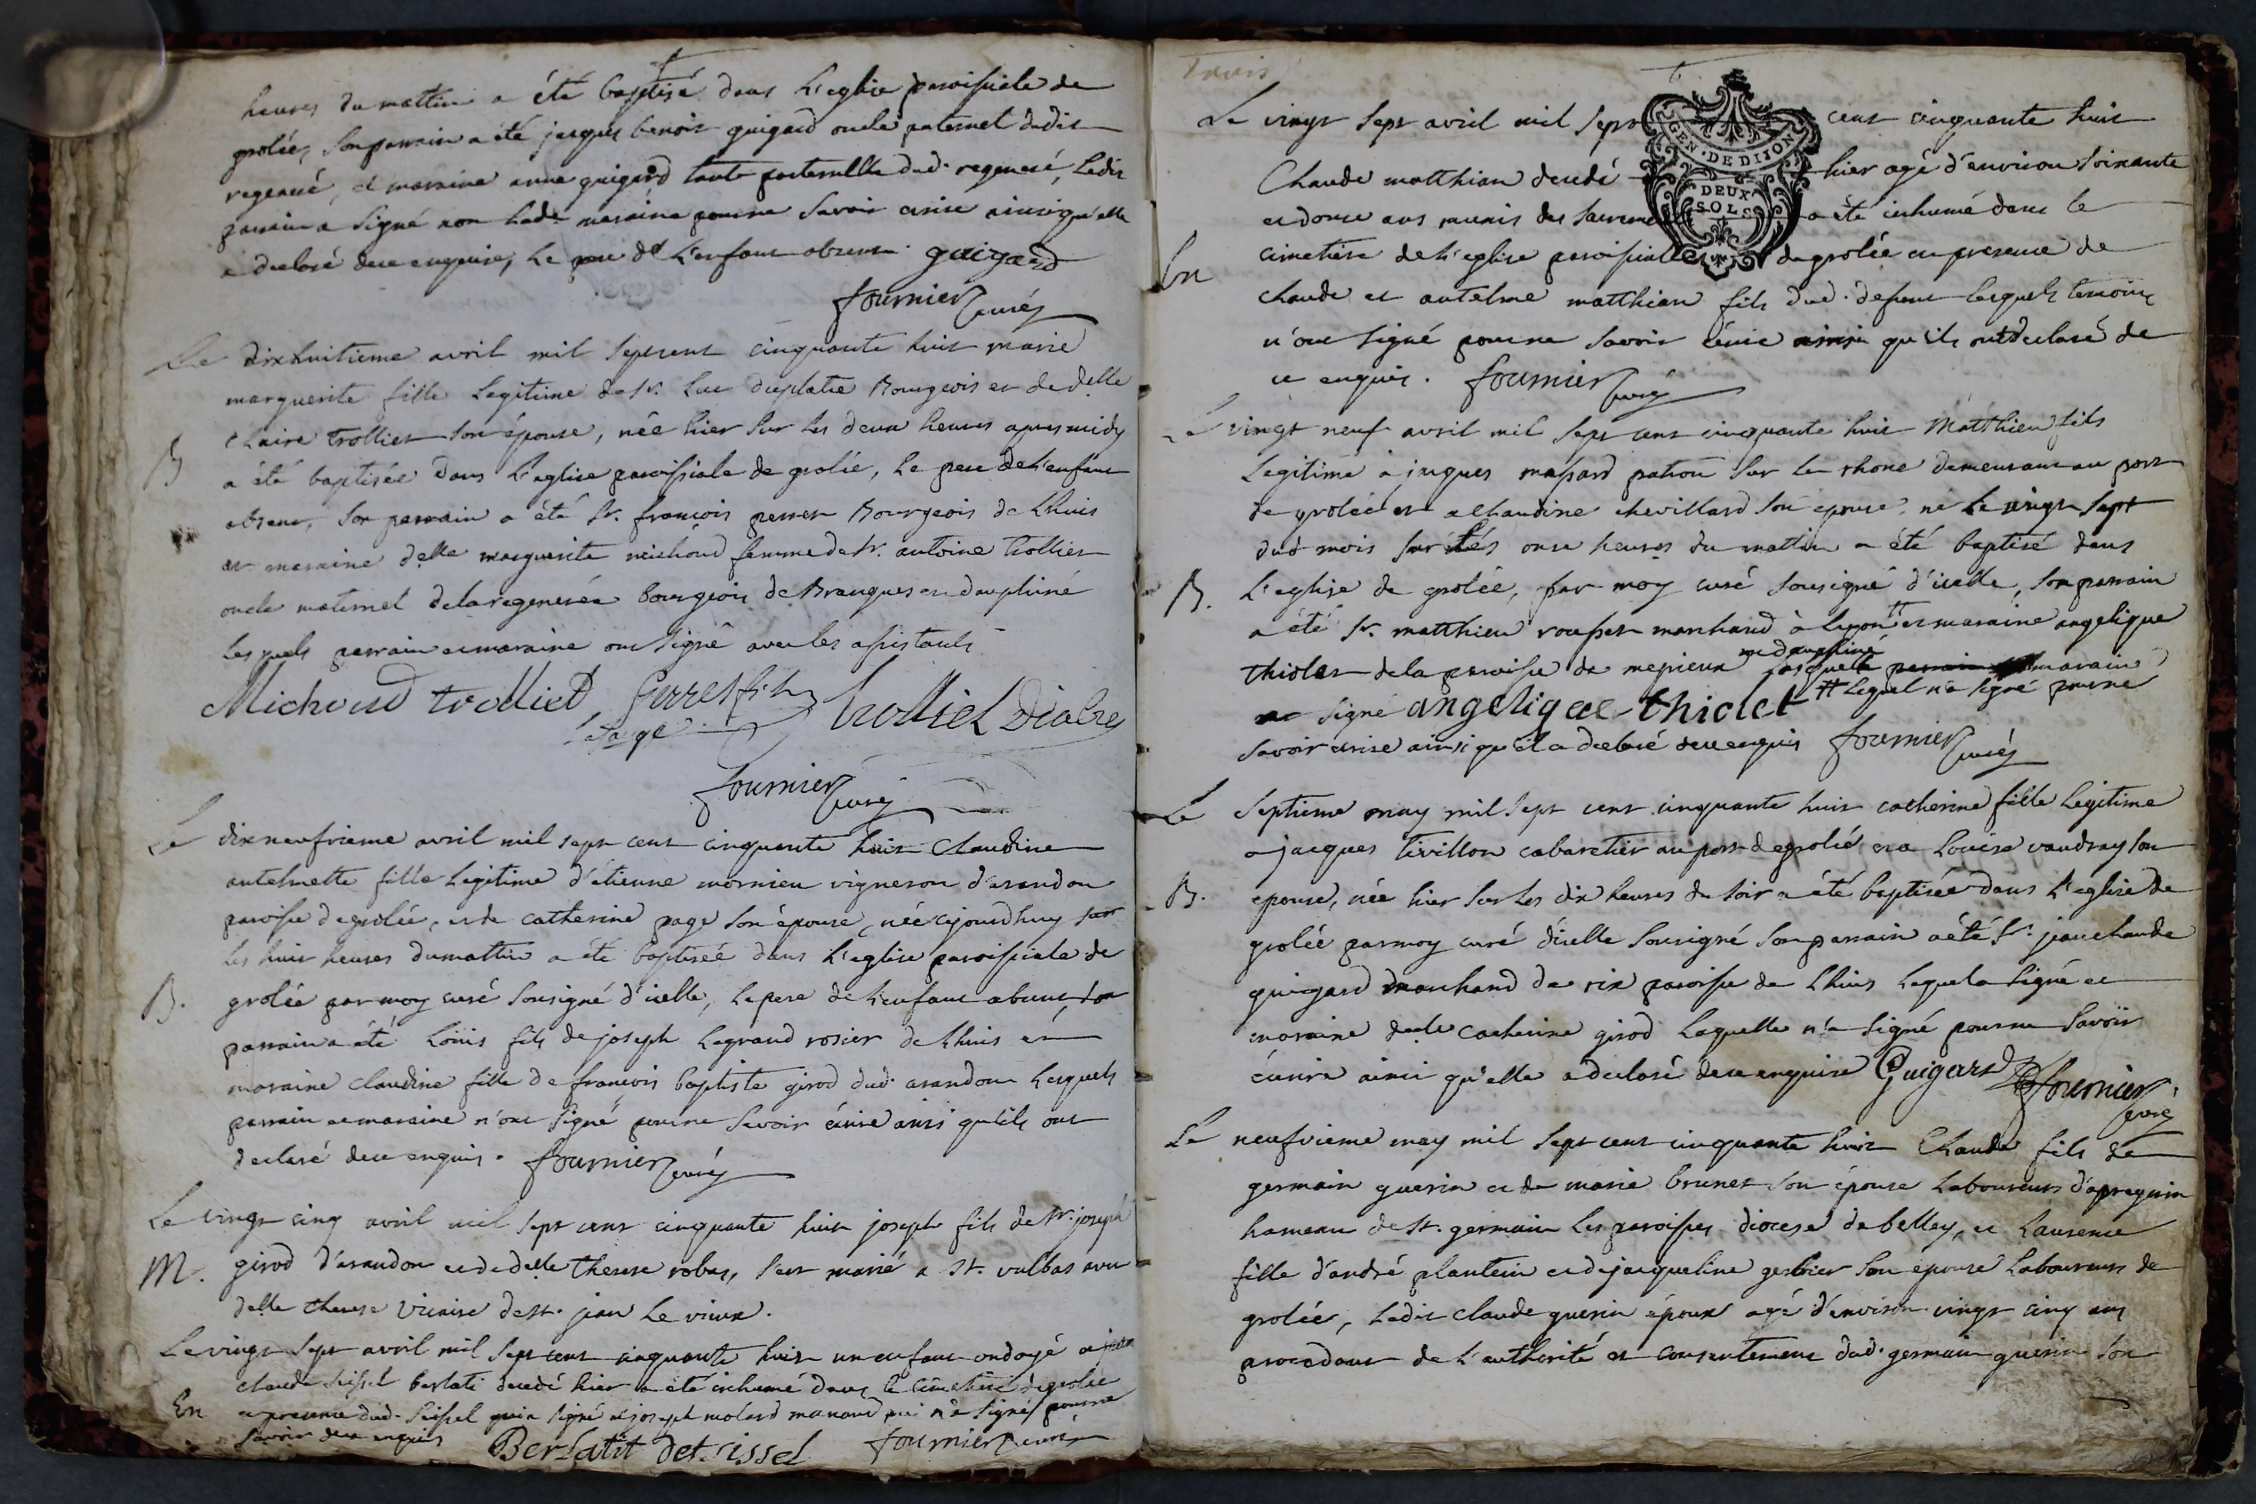 heures du mattin a été baptisé dans L'eglise paroissiale de
grolée, son parrain a été jacques benoit guigard oncle paternel dudit
regeneré, et maraine anne guigard tante paternelle dud. regeneré, Ledit
parrain a signé non Lade. maraine pour ne savoir ecrire ainsi qu'elle
a declaré de ce enquise, Le pere de L'enfant absent. guigard
fournier curé
Le dixhuitieme avril mil septcent cinquante huit marie
marguerite fille Legitime de sr. Luc duplatre Bourgeois et de delle
Claire trollier son épouse, née hier sur les deux heures apres midy
B a été baptisée dans L'eglise paroissiale de grolée, Le pere de L'enfant
absent, son parrain a été sr. françois perret Bourgeois de Lhuis
et maraine delle marguerite michoud femme de sr. antoine trollier
oncle maternel de la regenerée bourgeois de Brangues en dauphiné
Lesquels parrain et maraine ont signé avec les assistants
Michoud trolliet perret fils trolliet
fournier curé
Le dix neufvieme avril mil sept cent cinquante huit Claudine
antelmette fille Legitime d'étienne mornieu vigneron d'arandon
paroisse de grolée, et de catherine page son épouse, née cejourdhuy sur
les huit heures du mattin a été baptiseé dans L'eglise paroissiale de
B. grolée par moy curé sousigné d'icelle, Le pere de L'enfant absent, son
parrain a été Loüis fils de joseph Legrand rosier de Lhuis et
maraine claudine fille de françois baptiste girod dud. arandon Lesquels
parrain et maraine n'ont signé pour ne savoir écrire ainsi qu'ils ont
declaré de ce enquis. fournier curé
Le vingt cinq avril mil sept cent cinquante huit joseph fils de sr. joseph
M. girod d'arandon et de delle therese robat, s'est marié a st. vulbas avec
delle therese vicaire de st. jean Le vieux.
Le vingt sept avril mil sept cent cinquante huit un enfant ondoyé a jean
claude seissel berlati decedé hier a été inhumé dans le cimetiere de grolée
En en presence dud. seissel qui a signé et joseph molard qui n'a signé pour ne
savoir de ce enquis Berlatit det sissel fournier curé
trois
Le vingt sept avril mil sept cent cinquante huit
GEN. DE DIJON
DEUX
SOLS
Claude matthian decedé hier agé d'environ soixante
et douze ans munis des sacremens a été inhumé dans le
cimetiere de L'eglise paroissialle de grolée en presence de
En claude et antelme matthian fils dud. defunt lesquels temoins
n'ont signé pour ne savoir écrire ainsi qu'ils ont declaré de
ce enquis. fournier curé
Le vingt neuf avril mil sept cent cinquante huit Matthieu fils
Legitime à jaques massard patron sur Le rhone demeurant au port
de grolée et a claudine chevillard son epouse, né Le vingt sept
dud. mois sur les onze heures du mattin a été baptisé dans
B. L'eglise de grolée, par moy curé sousigné d'icelle, son parrain
a été sr. matthieu rousset marchand à Lyon tt et maraine angelique
thiolet de la paroisse de mepieux en dauphiné Laquelle maraine
a signé angelique thiolet tt Lequel n'a signé pour ne
savoir ecrire ainsi qu'il a declaré de ce enquis fournier curé
Le septieme may mil sept cent cinquante huit catherine fille Legitime
a jacques tivillon cabaretier au port de grolée et a Loüise vaudray son
B. epouse, née hier sur les dix heures du soir a été baptisée dans L'eglise de
grolée par moy curé d'icelle sousigné son parrain a été sr. jean claude
guigard marchand de rix paroisse de Lhuis Lequel a signé et
maraine delle catherine girod Laquelle n'a signé pour ne savoir
écrire ainsi qu'elle a declaré de ce enquise Guigard fournier
curé
Le neufvieme may mil sept cent cinquante huit Claude fils de
germain guerin et de marie brunet son épouse Laboureurs d'apregnin
hameau de st. germain les paroisses diocese de belley, et Laurence
fille d'andré plantin et de jacqueline gerbier son épouse Laboureurs de
grolée, Ledit claude guerin époux agé d'environ vingt cinq ans
procedant de L'authorité et consentement dud. germain guerin son